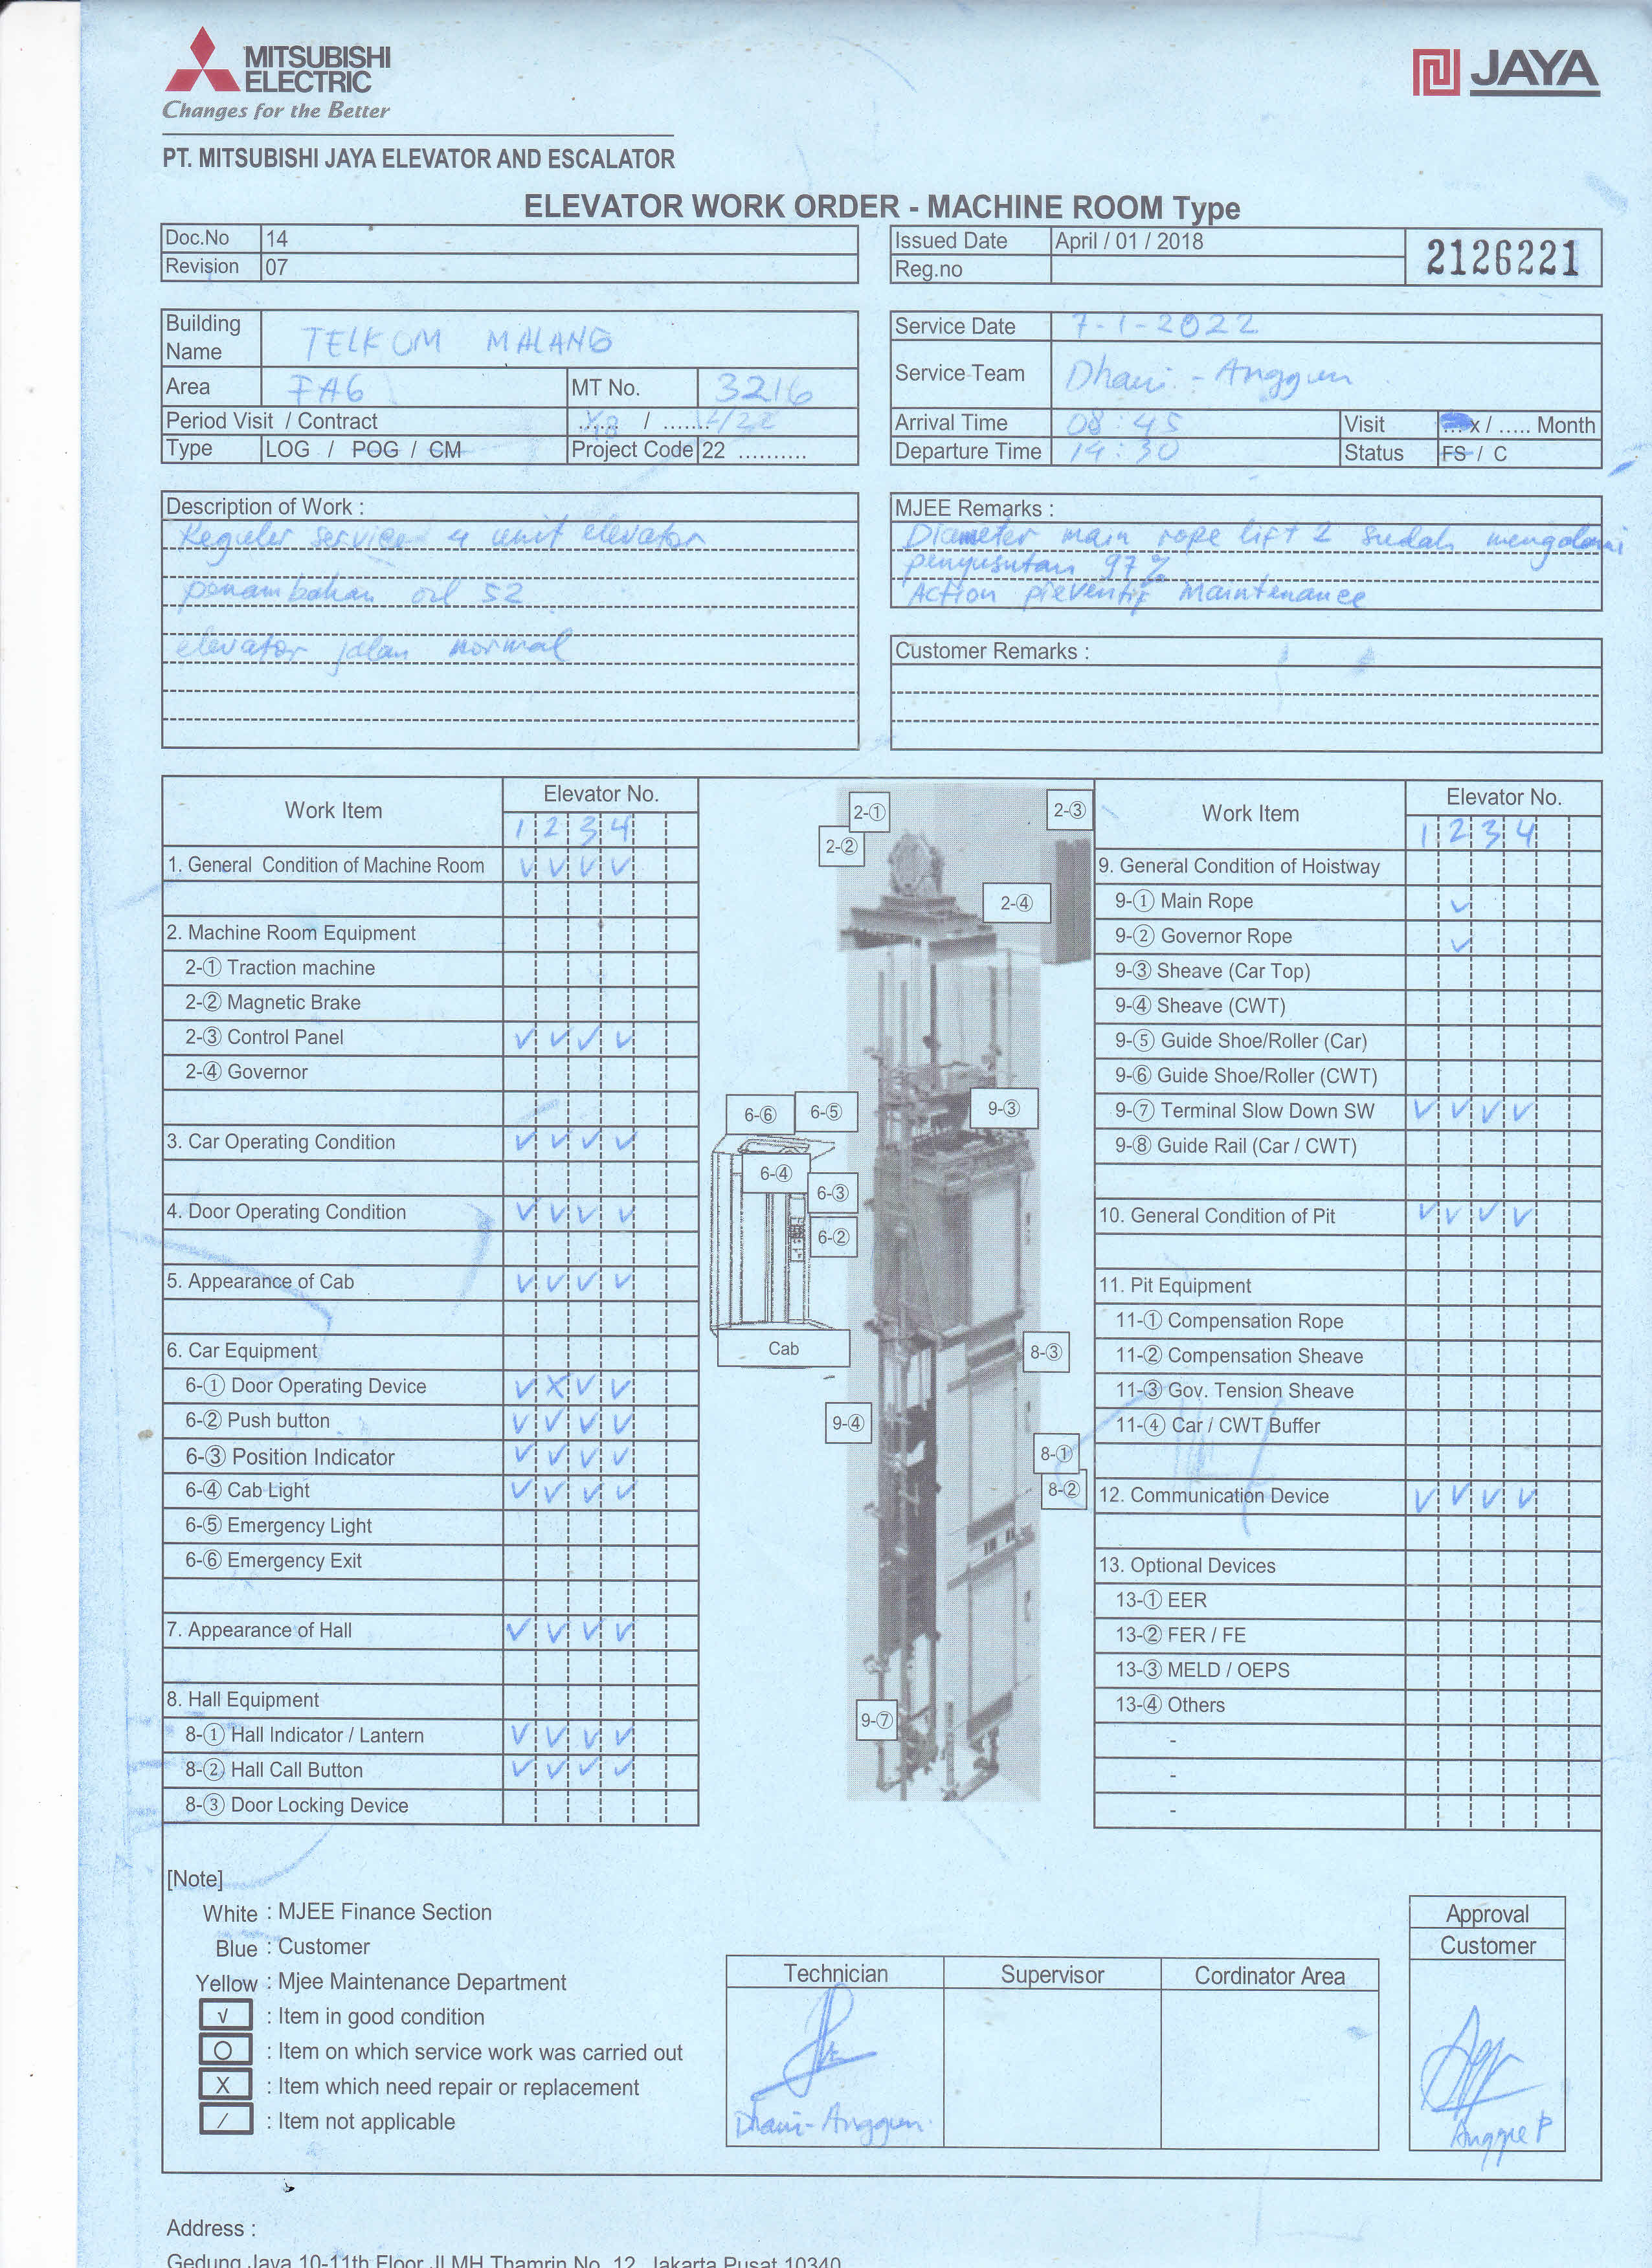 MITSUBISHI
ELECTRIC
Changes for the Better
JAYA
PT. MITSUBISHI JAYA ELEVATOR AND ESCALATOR
ELEVATOR WORK ORDER - MACHINE ROOM Type
Doc.No 14
Revision 07
Issued Date April / 01 / 2018
Reg.no
2126221
Building Name TELKOM MALANG
Area FA6 MT No. 3216
Period Visit / Contract ...... / .......
Type LOG / POG / CM Project Code 22 ..........
Service Date 7-1-2022
Service Team Dhani - Anggun
Arrival Time 08:45 Visit ... x / ..... Month
Departure Time 14:30 Status FS / C
Description of Work :
Reguler service 4 unit elevator
penambahan oil 52
elevator jalan normal
MJEE Remarks :
Diameter main rope lift 2 sudah mengalami
penyusutan 97%
Action preventif Maintenance
Customer Remarks :
Work Item Elevator No.
1 2 3 4
1. General Condition of Machine Room √ √ √ √
2. Machine Room Equipment
2-① Traction machine
2-② Magnetic Brake
2-③ Control Panel √ √ √ √
2-④ Governor
3. Car Operating Condition √ √ √ √
4. Door Operating Condition √ √ √ √
5. Appearance of Cab √ √ √ √
6. Car Equipment
6-① Door Operating Device √ X √ √
6-② Push button √ √ √ √
6-③ Position Indicator √ √ √ √
6-④ Cab Light √ √ √ √
6-⑤ Emergency Light
6-⑥ Emergency Exit
7. Appearance of Hall √ √ √ √
8. Hall Equipment
8-① Hall Indicator / Lantern √ √ √ √
8-② Hall Call Button √ √ √ √
8-③ Door Locking Device
2-①
2-③
2-②
2-④
6-⑥
6-⑤
9-③
6-④
6-③
6-②
Cab
8-③
9-④
8-①
8-②
9-⑦
Work Item Elevator No.
1 2 3 4
9. General Condition of Hoistway
9-① Main Rope √
9-② Governor Rope √
9-③ Sheave (Car Top)
9-④ Sheave (CWT)
9-⑤ Guide Shoe/Roller (Car)
9-⑥ Guide Shoe/Roller (CWT)
9-⑦ Terminal Slow Down SW √ √ √ √
9-⑧ Guide Rail (Car / CWT)
10. General Condition of Pit √ √ √ √
11. Pit Equipment
11-① Compensation Rope
11-② Compensation Sheave
11-③ Gov. Tension Sheave
11-④ Car / CWT Buffer
12. Communication Device √ √ √ √
13. Optional Devices
13-① EER
13-② FER / FE
13-③ MELD / OEPS
13-④ Others
-
-
-
[Note]
White : MJEE Finance Section
Blue : Customer
Yellow : Mjee Maintenance Department
√ : Item in good condition
O : Item on which service work was carried out
X : Item which need repair or replacement
/ : Item not applicable
Technician Supervisor Cordinator Area
Dhani-Anggun
Approval
Customer
Anggie P
Address :
Gedung Jaya 10-11th Floor Jl.MH Thamrin No. 12, Jakarta Pusat 10340